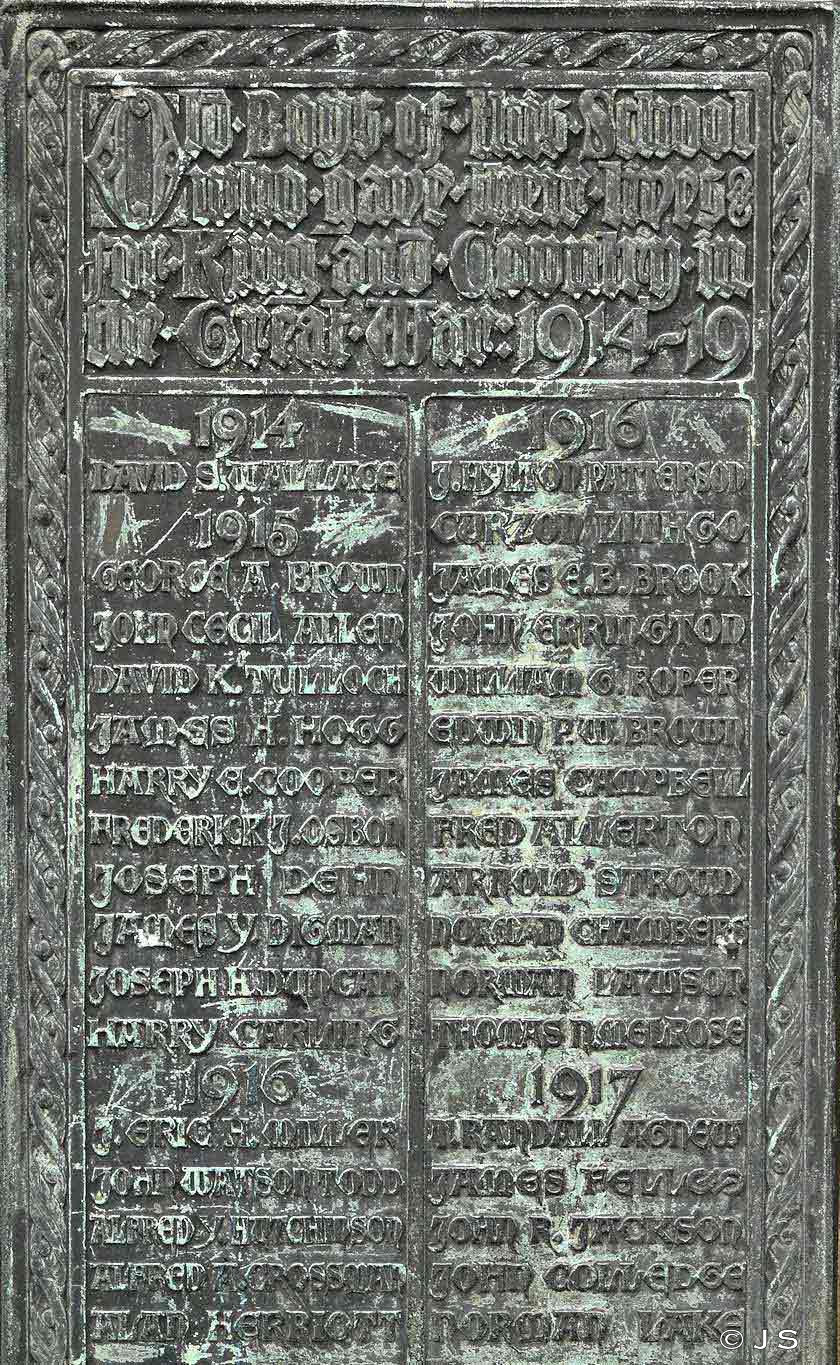 Old·Boys·of·this·School
who·gave·their·lives
for·King·and·Country·in
the·Great·War:1914-19
1914
DAVID S. WALLACE
1915
GEORGE A. BROWN
JOHN CECIL ALLEN
DAVID K. TULLOCH
JAMES H. HOGG
HARRY E. COOPER
FREDERICK J. OSBON
JOSEPH DEHN
JAMES Y. DIGMAN
JOSEPH H. DUNCAN
HARRY CARLING
1916
J. ERIC H. MILLER
JOHN WATSON TODD
ALFRED Y. HUTCHINSON
ALFRED A. CROSSMAN
ALAN HERRIOTT
1916
J. HYLTON PATTERSON
CURZON LITHGO
JAMES E.B. BROOK
JOHN ERRINGTON
WILLIAM G. ROPER
EDWIN P.W. BROWN
JAMES CAMPBELL
FRED ALLERTON
ARNOLD STROUD
NORMAN CHAMBERS
NORMAN LAWSON
THOMAS N. MELROSE
1917
RANDALL AGNEW
JAMES
JOHN R. JACKSON
JOHN COLLEDGE
NORMAN LAKE
© J S